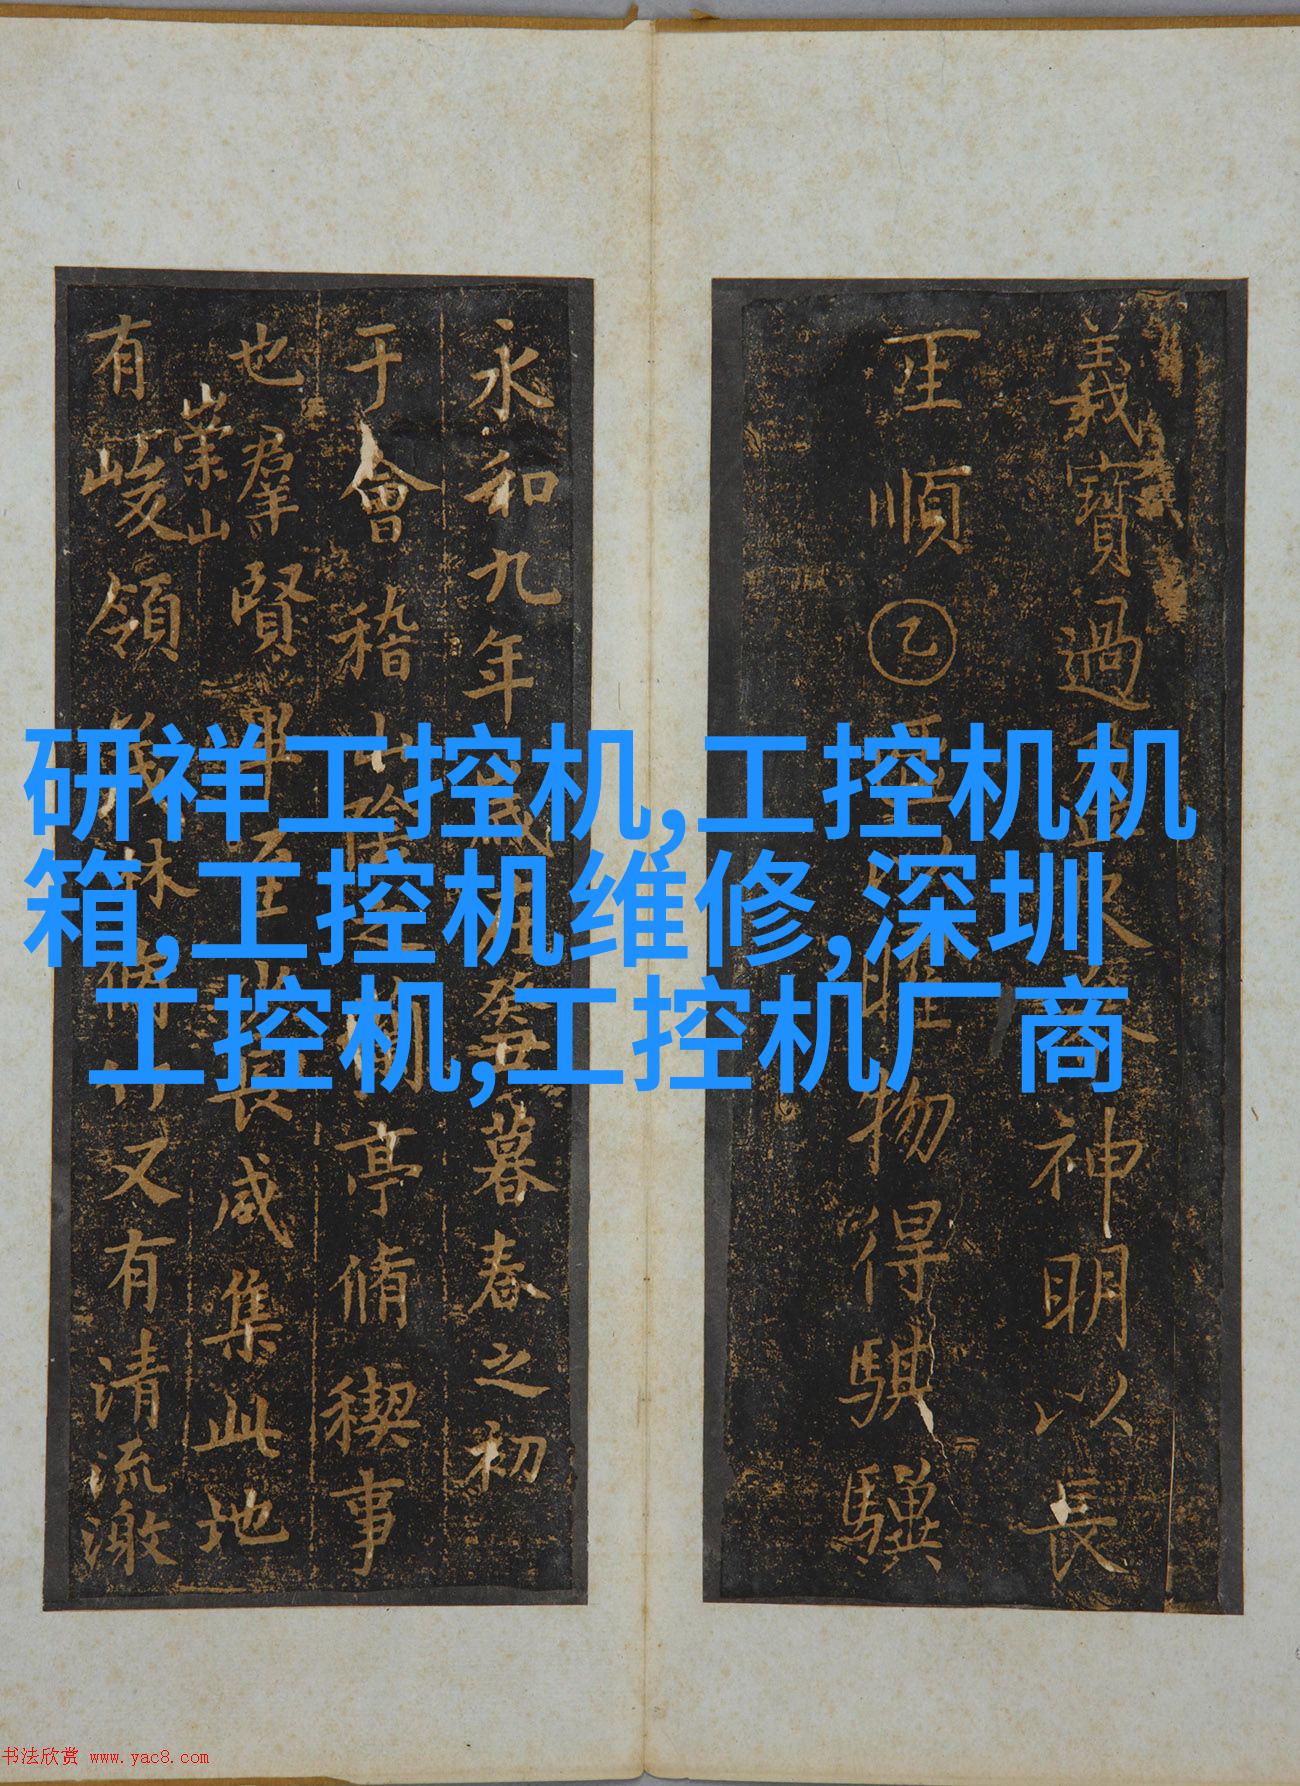 研祥工控机,工控机机
箱,工控机维修,深圳
工控机,工控机厂商
義寶過神明以長
王順乙物得騏驥
永和九年歲在癸丑暮春之初
于會稽山陰之蘭亭脩禊事
也羣賢畢至少長咸集此地
崇山
有峻領茂林脩竹又有清流激
书法欣赏 www.yac8.com